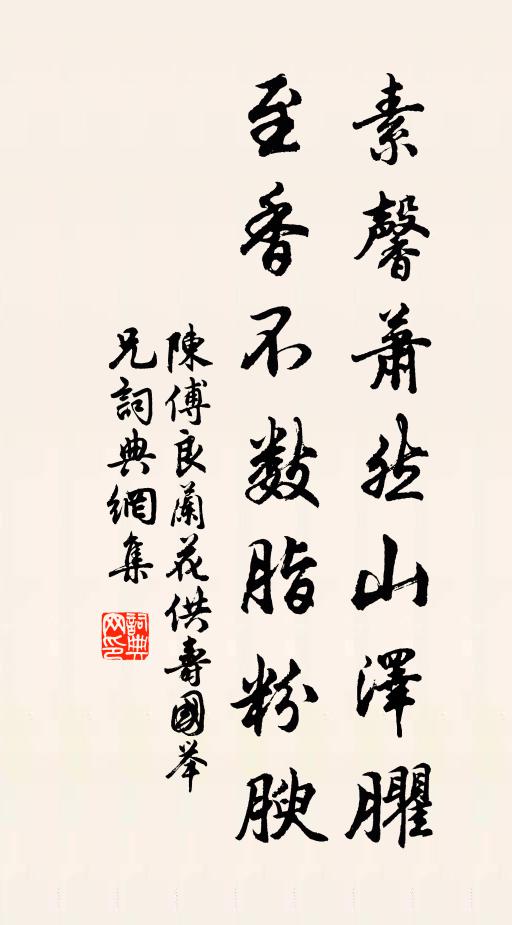 素馨蕭然山澤臞
至香不數脂粉腴
陳傅良蘭花供壽國舉
兄詞典網集
詞典
网印